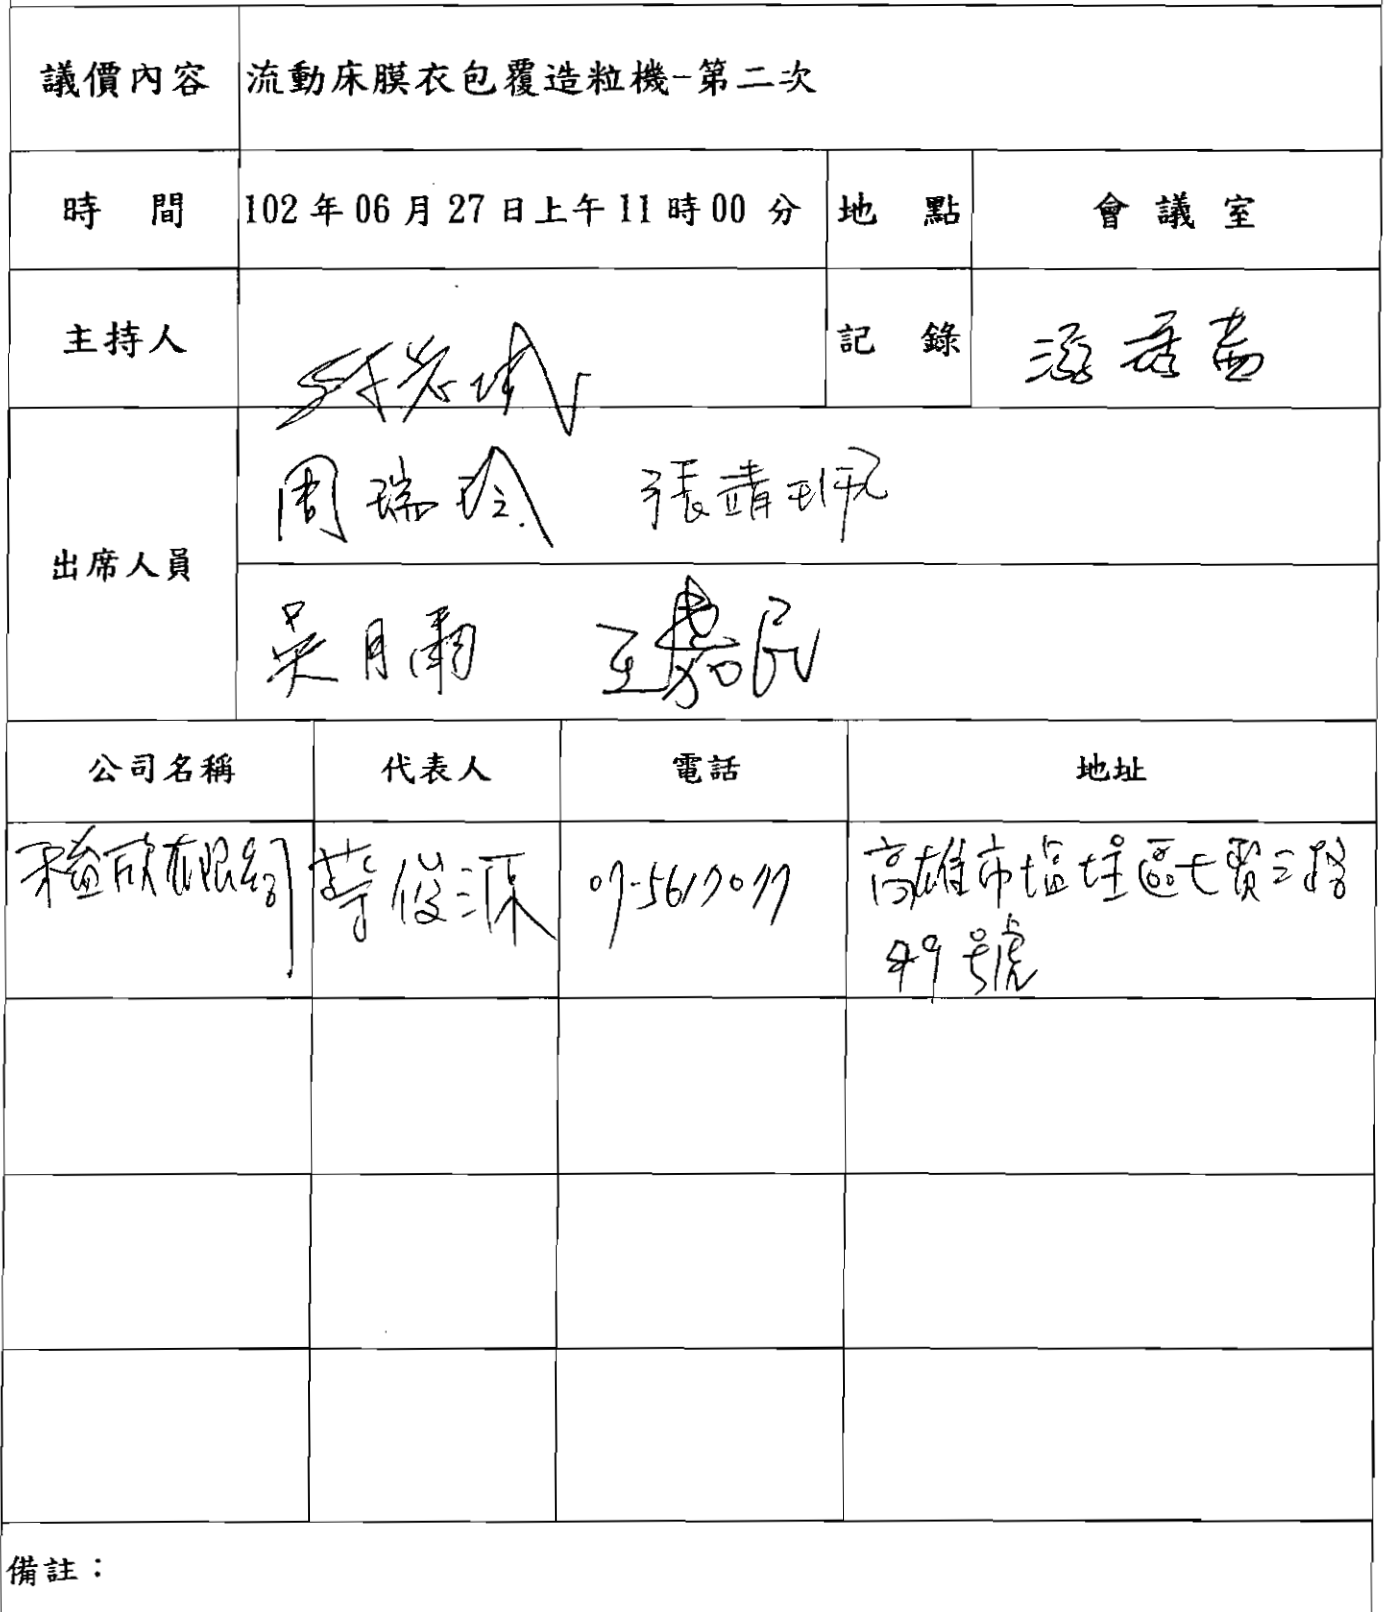 議價內容 流動床膜衣包覆造粒機-第二次
時 間 102年06月27日上午11時00分 地 點 會議室
主持人 記 錄
周瑞玲 張靖珮
出席人員
吳月霜 王嘉民
公司名稱 代表人 電話 地址
有限公司 俊源 07-5617077 高雄市塩埕區七賢三路
49號
備註：